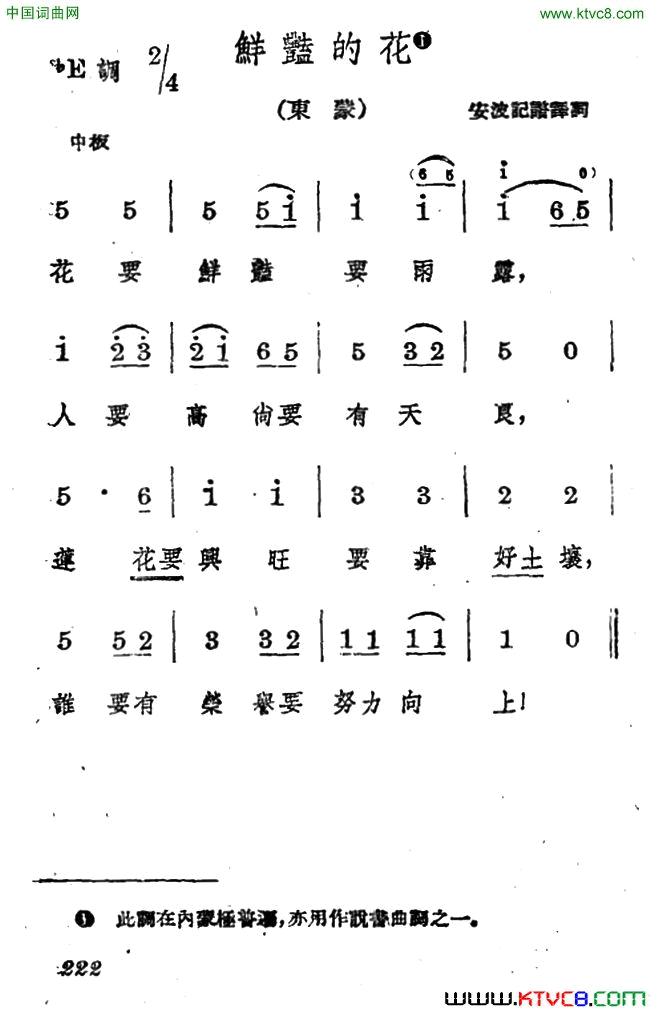 中国词曲网
www.ktvc8.com
鮮豔的花❶
♭E調 2/4
(東蒙)
安波記譜譯詞
中板
(6 5 i 0)
5 5 | 5 5 i | i i | i 6 5 |
花要鮮豔要雨露,
i 2 3 | 2 i 6 5 | 5 3 2 | 5 0 |
人要高尙要有天良,
5 · 6 | i i | 3 3 | 2 2 |
蓮花要興旺要靠好土壤,
5 5 2 | 3 3 2 | 1 1 1 1 | 1 0 ‖
誰要有榮譽要努力向上!
❶ 此調在內蒙極普遍,亦用作說書曲調之一。
222
www.KTVC8.com